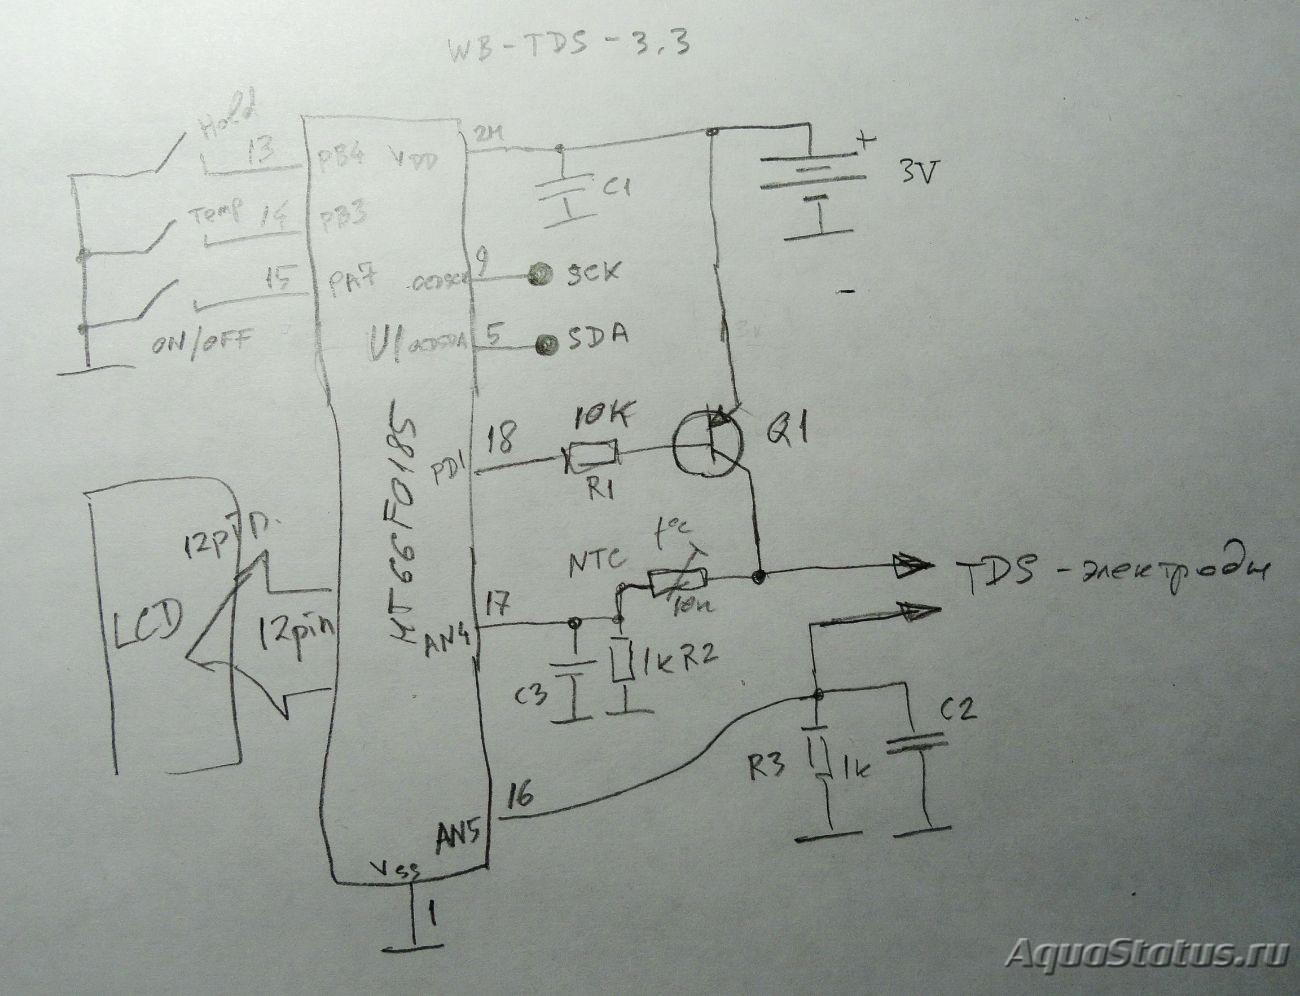 WB-TDS-3.3
Hold
13
PB4
VDD
24
+
3V
-
C1
Temp
14
PB3
15
PA7
ON/OFF
9
SCK
U1
OCDSDA
5
SDA
HT66F0185
PD1
18
10K
R1
Q1
LCD
12pin
12pin
NTC
t°c
TDS-электроды
AN4
17
C3
1k R2
R3
1k
C2
AN5
16
Vss
1
AquaStatus.ru